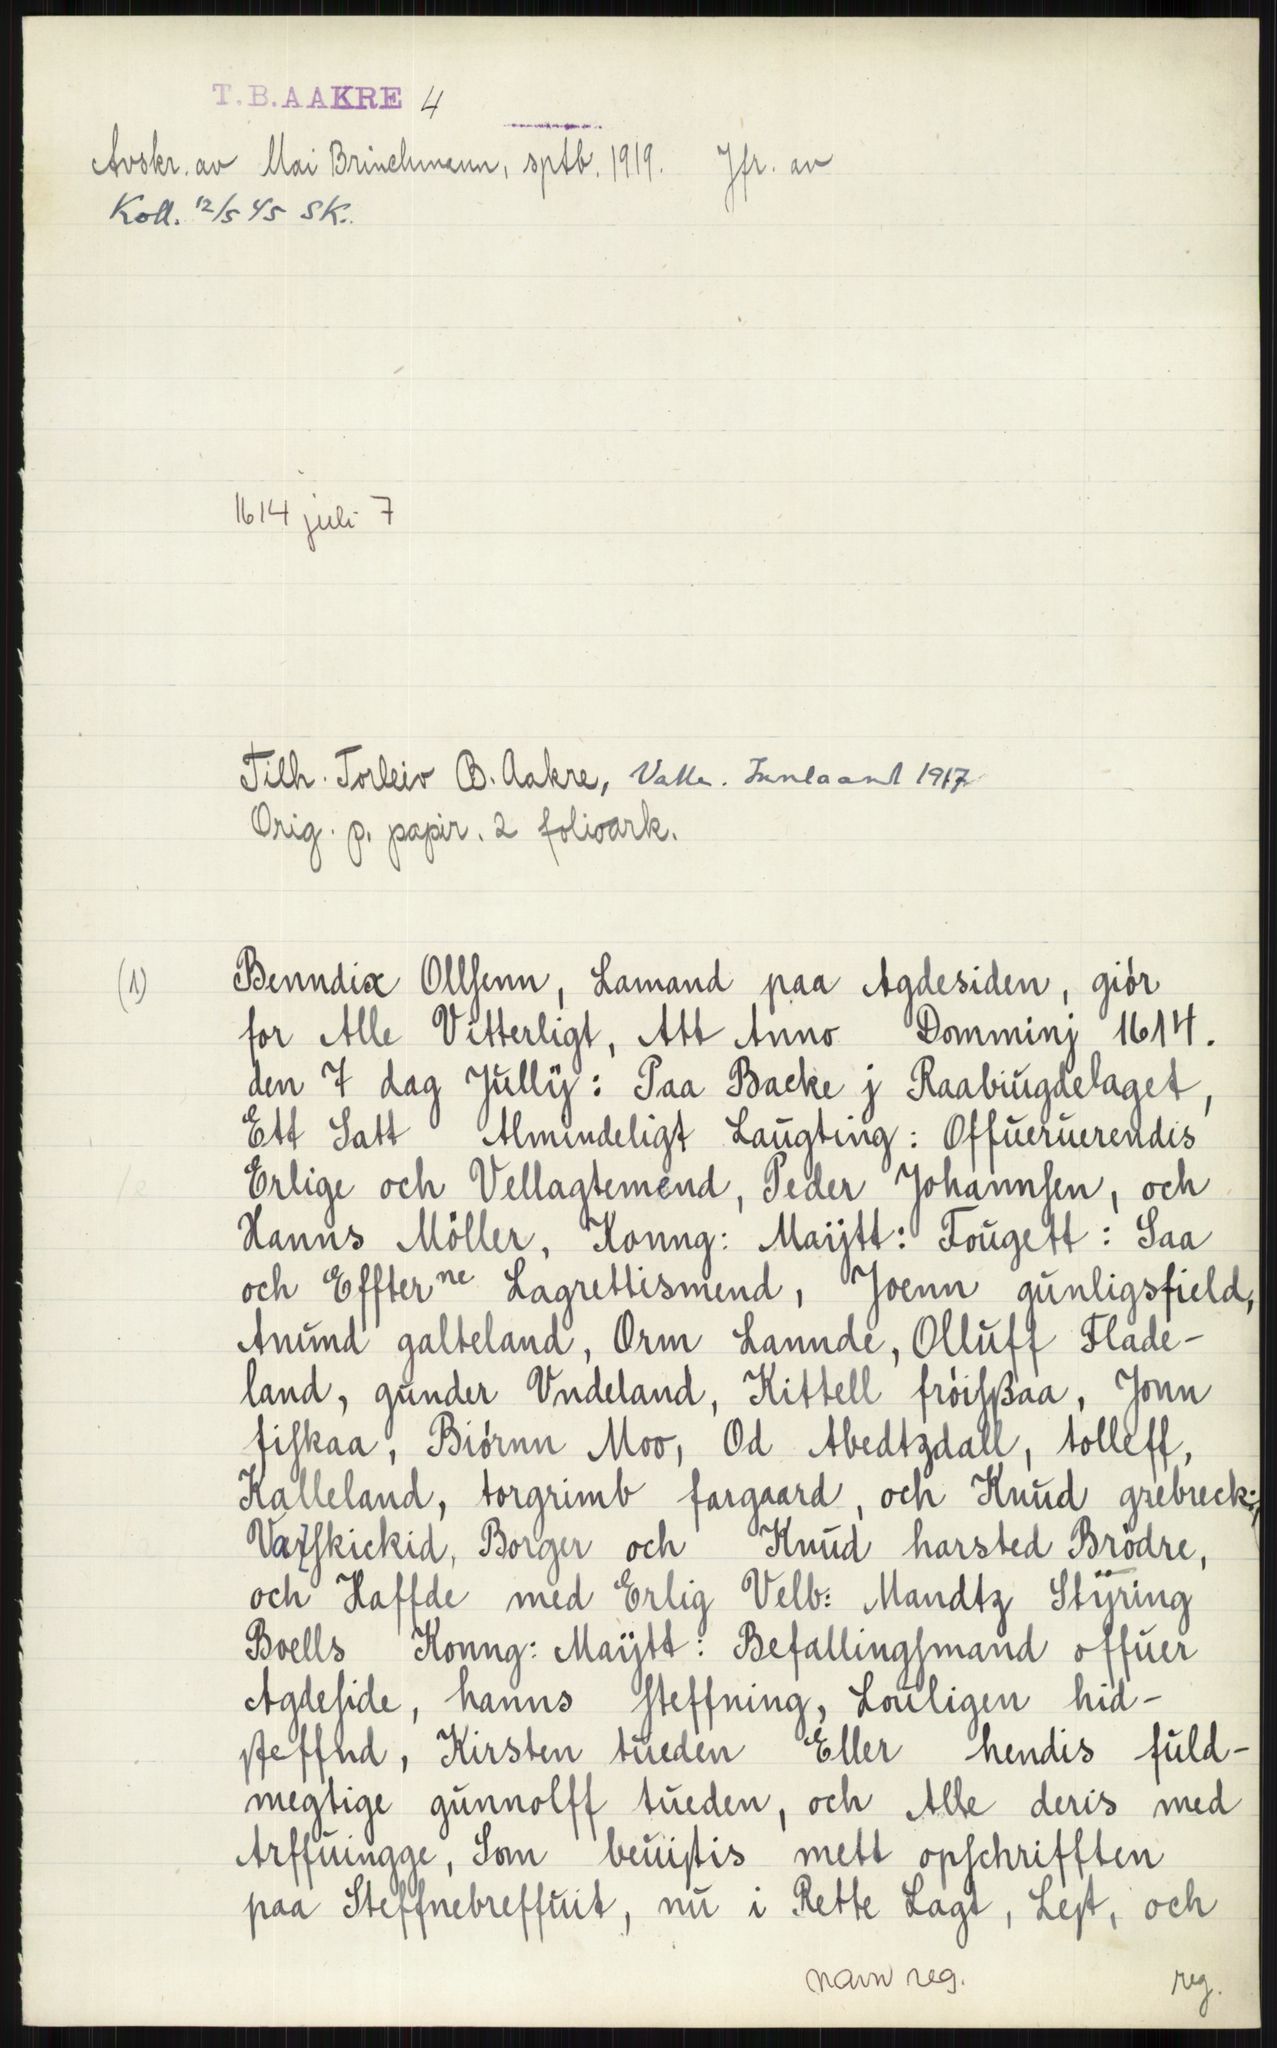 T.B.AAKRE 4
Avskr. av Mai Brinchmann, sptb. 1919. Jfr. av
Koll. 12/5 45 SK.
1614 juli 7
Tilh. Torleiv B. Aakre, Valle. Innlaant 1917
Orig. p. papir. 2 folioark.
(1) Benndix Ollsenn, Lamand paa Agdesiden, giör
for Alle Vitterligt, Att Anno Domminj 1614.
den 7 dag Jullÿ: Paa Backe j Raabiugdelaget,
Ett Satt Almindeligt Laugting: Offueruerendis
Erlige och Vellagtemend, Peder Johannsen, och
Hanns Möller, Konng: Maÿtt: Fougett: Saa
och Effterne Lagrettismend, Joenn gunligsfield,
Anund galteland, Orm Lannde, Olluff Flade-
land, gunder Vndeland, Kittell fröisßaa, Jonn
fiskaa, Biörnn Moo, Od Abedtzdall, tolleff,
Kalleland, torgrimb fargaard, och Knud grebreck:
Varskickid, Borger och Knud harsted Brödre,
och Haffde med Erlig Velb: Mandtz Stÿring
Boells Konng: Maÿtt: Befallingsmand offuer
Agdeside, hanns steffning, Louligen hid-
steffnd, Kirsten tueden Eller hendis fuld-
megtige gunnolff tueden, och Alle deris med
Arffuingge, Som beuistis mett opschrifften
paa Steffnebreffuit, nu i Rette Lagt, Lest, och
navn reg. reg.